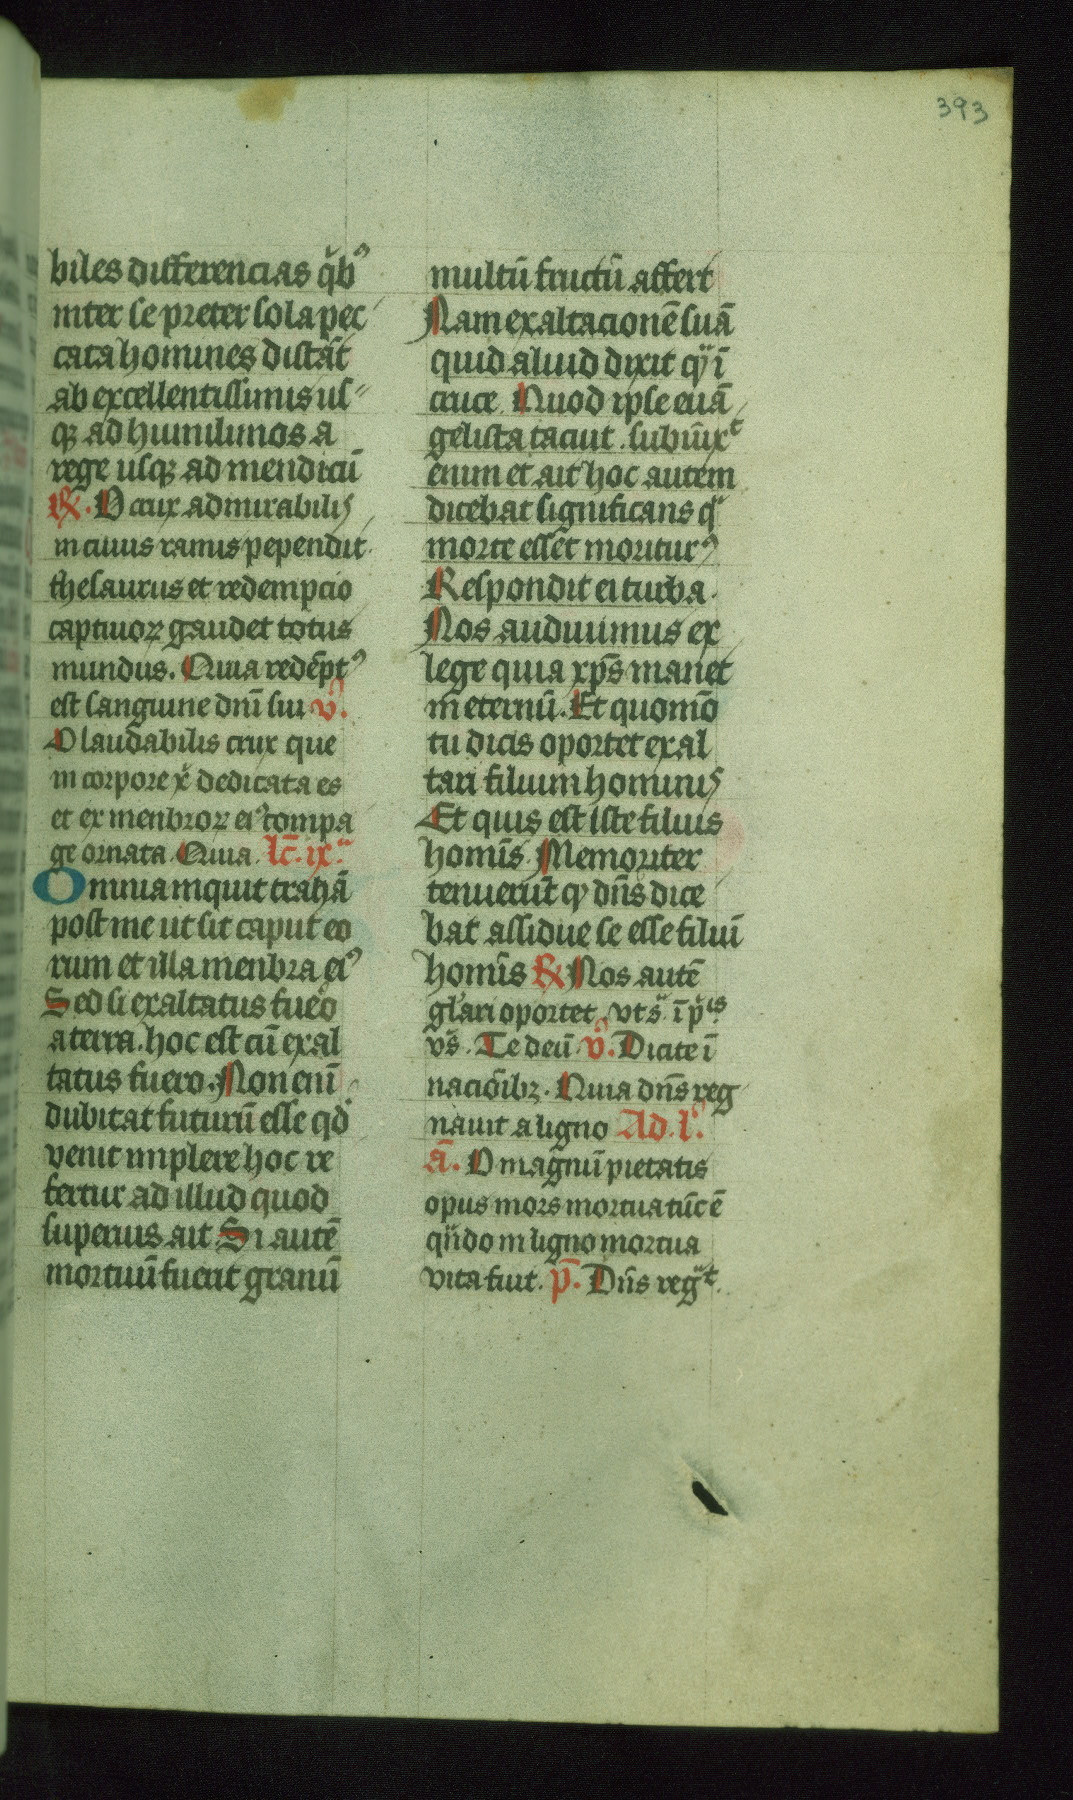 393
biles differencias q̃bꝰ
inter se preter sola pec
cata homines distãt
ab excellentissimis us
qꝫ ad humilimos a
rege usqꝫ ad mendicũ
℟. O crux admirabilis
in cuius ramis pependit
thesaurus et redempcio
captiuoꝝ gaudet totus
mundus. Quia redẽptꝰ
est sanguine dnĩ sui ꝟ.
O laudabilis crux que
in corpore xp̃i dedicata es
et ex menbroꝝ eiꝰ compa
ge ornata. Quia. lc̃. ixᵃ
Omnia inquit trahã
post me ut sit caput eo
rum et illa menbra eiꝰ
Sed si exaltatus fueo
a terra. hoc est cũ exal
tatus fuero. Non enĩ
dubitat futurũ esse qd̾
venit implere hoc re
fertur ad illud quod
superius ait. Si autẽ
mortuũ fuerit granũ
multũ fructũ affert
Nam exaltacionẽ suã
quid aliud dixit qᷓ ĩ
cruce. Quod ipse euã
gelista tacuit. subiũxᵗ
enim et ait hoc autem
dicebat significans qᵃ
morte esset moriturꝰ
Respondit ei turba.
Nos audiuimus ex
lege quia xp̃s manet
in eternũ. Et quomõ
tu dicis oportet exal
tari filium hominis
Et quis est iste filius
homĩs. Memoriter
tenuerũt qꝫ dñs dice
bat assidue se esse filiũ
homĩs ℟ Nos autẽ
gl̾ari oportet. vt sᵃ. ĩ pⁱ̃s
vs̃. Te deũ. ꝟ. Dicite ĩ
nacõibꝫ. Quia dñs reg
nauit a ligno Ad. lᵒ.
ã. O magnũ pietatis
opus mors mortua tũc ẽ
qñdo in ligno mortua
vita fuit. p̃. Dñs regᵃᵗ.